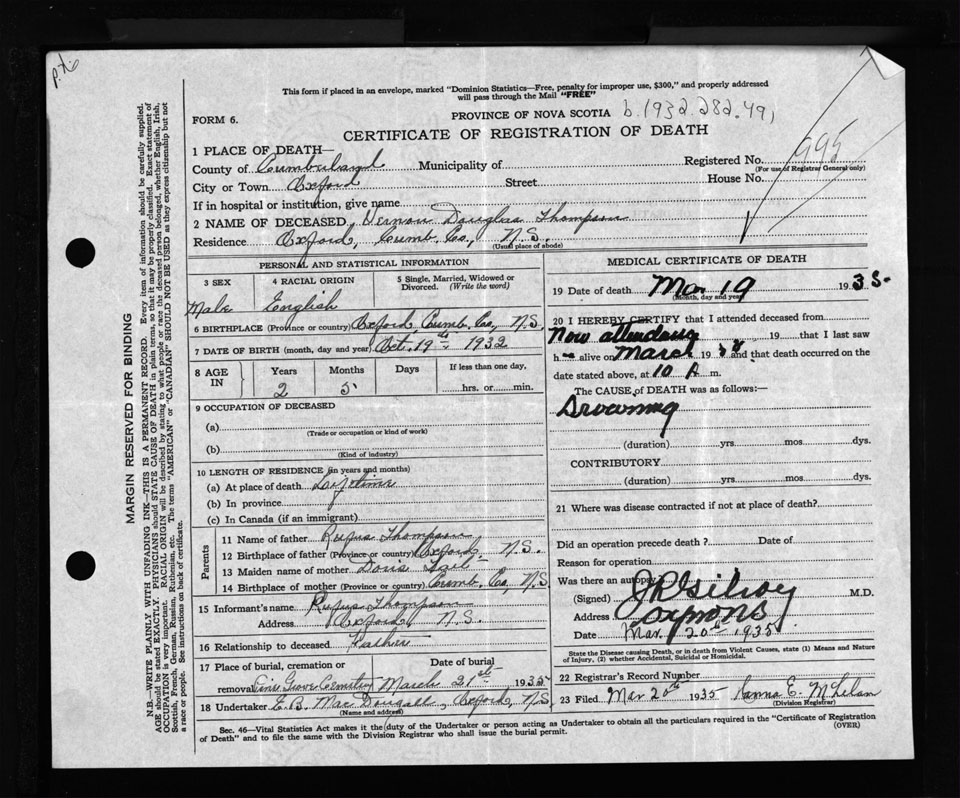 This form if placed in an envelope, marked "Dominion Statistics—Free, penalty for improper use, $300," and properly addressed
will pass through the Mail "FREE"
FORM 6.
PROVINCE OF NOVA SCOTIA b.1932.282.491
CERTIFICATE OF REGISTRATION OF DEATH
1 PLACE OF DEATH—
County of Cumberland Municipality of Registered No. 995
(For use of Registrar General only)
City or Town Oxford Street House No.
If in hospital or institution, give name
2 NAME OF DECEASED Vernon Douglas Thompson
Residence Oxford, Cumb. Co., N.S.
(Usual place of abode)
PERSONAL AND STATISTICAL INFORMATION
3 SEX 4 RACIAL ORIGIN 5 Single, Married, Widowed or Divorced. (Write the word)
Male English
6 BIRTHPLACE (Province or country) Oxford, Cumb. Co., N.S.
7 DATE OF BIRTH (month, day and year) Oct. 19th 1932
8 AGE IN Years Months Days If less than one day,
2 5 hrs. or min.
9 OCCUPATION OF DECEASED
(a)
(Trade or occupation or kind of work)
(b)
(Kind of industry)
10 LENGTH OF RESIDENCE (in years and months)
(a) At place of death Lifetime
(b) In province
(c) In Canada (if an immigrant)
Parents
11 Name of father Rufus Thompson
12 Birthplace of father (Province or country) Oxford, N.S.
13 Maiden name of mother Doris
14 Birthplace of mother (Province or country) Cumb. Co., N.S.
15 Informant's name Rufus Thompson
Address Oxford, N.S.
16 Relationship to deceased Father
17 Place of burial, cremation or removal Pine Grove Cemetery
Date of burial March 21st 1935
18 Undertaker E.B. MacDougall, Oxford, N.S.
(Name and address)
MEDICAL CERTIFICATE OF DEATH
19 Date of death Mar 19 1935
(Month, day and year)
20 I HEREBY CERTIFY that I attended deceased from
19 that I last saw
h alive on March 19 and that death occurred on the
date stated above, at 10 A m.
The CAUSE OF DEATH was as follows:—
Drowning
(duration) yrs. mos. dys.
CONTRIBUTORY
(duration) yrs. mos. dys.
21 Where was disease contracted if not at place of death?
Did an operation precede death? Date of
Reason for operation
Was there an autopsy
(Signed) Gilroy M.D.
Address Oxford NS
Date Mar. 20th 1935
State the Disease causing Death, or in death from Violent Causes, state (1) Means and Nature
of Injury, (2) whether Accidental, Suicidal or Homicidal.
22 Registrar's Record Number
23 Filed Mar 20th 1935 E. McLelan
(Division Registrar)
Sec. 46—Vital Statistics Act makes it the duty of the Undertaker or person acting as Undertaker to obtain all the particulars required in the "Certificate of Registration
of Death" and to file the same with the Division Registrar who shall issue the burial permit.
(OVER)
MARGIN RESERVED FOR BINDING
N.B.—WRITE PLAINLY WITH UNFADING INK—THIS IS A PERMANENT RECORD. Every item of information should be carefully supplied.
AGE should be stated EXACTLY. PHYSICIANS should STATE CAUSE OF DEATH in plain terms, so that it may be properly classified. Exact statement of
OCCUPATION is very important. RACIAL ORIGIN will be described by stating to what people or race the deceased person belonged, whether English, Irish,
Scottish, French, German, Russian, Ruthenian, etc. The terms "AMERICAN" or "CANADIAN" SHOULD NOT BE USED as they express citizenship but not
a race or people. See instructions on back of certificate.